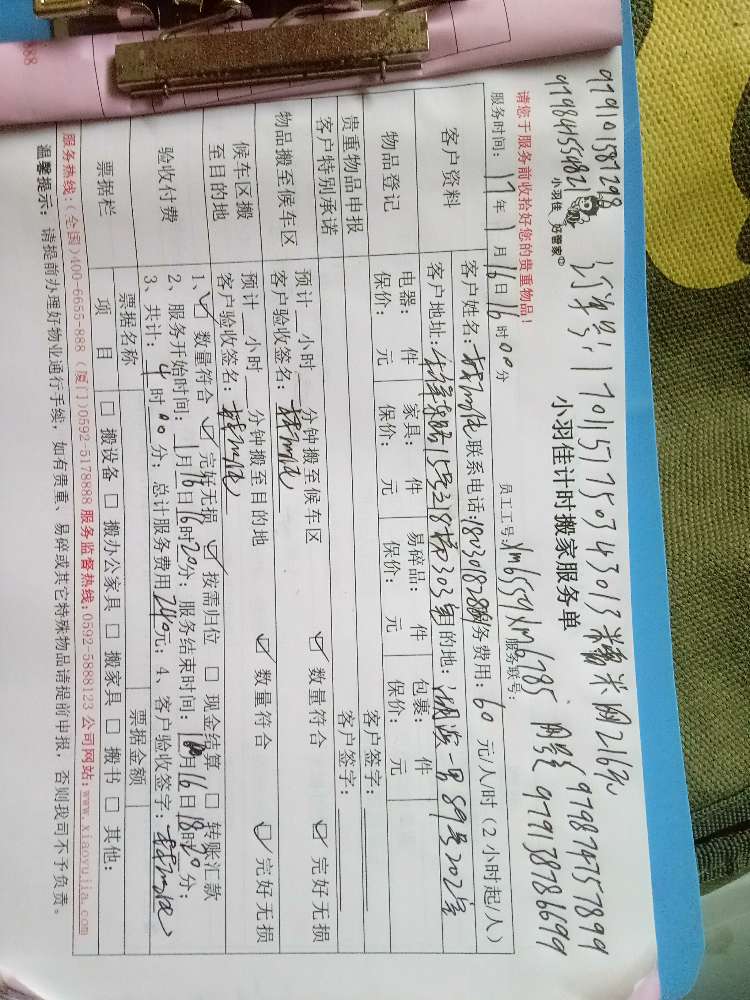 9791015871298 订单号:170115750343013 糯米网216元 979874757899
979841554821 网点 979158786699
小羽佳 好管家
小羽佳计时搬家服务单
请您于服务前收拾好您的贵重物品!
员工工号:xm6559 xm6785 服务联号:
服务时间: 17 年 1 月 16 日 16 时 00 分
客户资料
客户姓名: 联系电话: 服务费用: 60 元/人/时(2小时起/人)
客户地址: 15号218栋303室 目的地: 89号202室
物品登记
电器: 件 家具: 件 易碎品: 件 包裹: 件
保价: 元 保价: 元 保价: 元 保价: 元
贵重物品申报 客户签字:
客户特别承诺 客户签字:
物品搬至候车区
预计 小时 分钟搬至候车区 数量符合 完好无损
客户验收签名:
候车区搬至目的地
预计 小时 分钟搬至目的地 数量符合 完好无损
客户验收签名:
验收付费
1、 数量符合 完好无损 按需归位 □ 现金结算 □ 转账汇款
2、服务开始时间: 1月16日16时20分; 服务结束时间: 1月16日18时20分;
3、共计: 4 时 00 分; 总计服务费用 240 元; 4、客户验收签字:
票据栏
票据名称 票据金额
项 目 □ 搬设备 □ 搬办公家具 □ 搬家具 □ 搬书 □ 其他:
服务热线:(全国)400-6655-888(厦门)0592-5178888 服务监督热线:0592-5888123 公司网站:www.xiaoyujia.com
温馨提示: 请提前办理好物业通行手续, 如有贵重、易碎或其它特殊物品请提前申报, 否则我司不予负责。